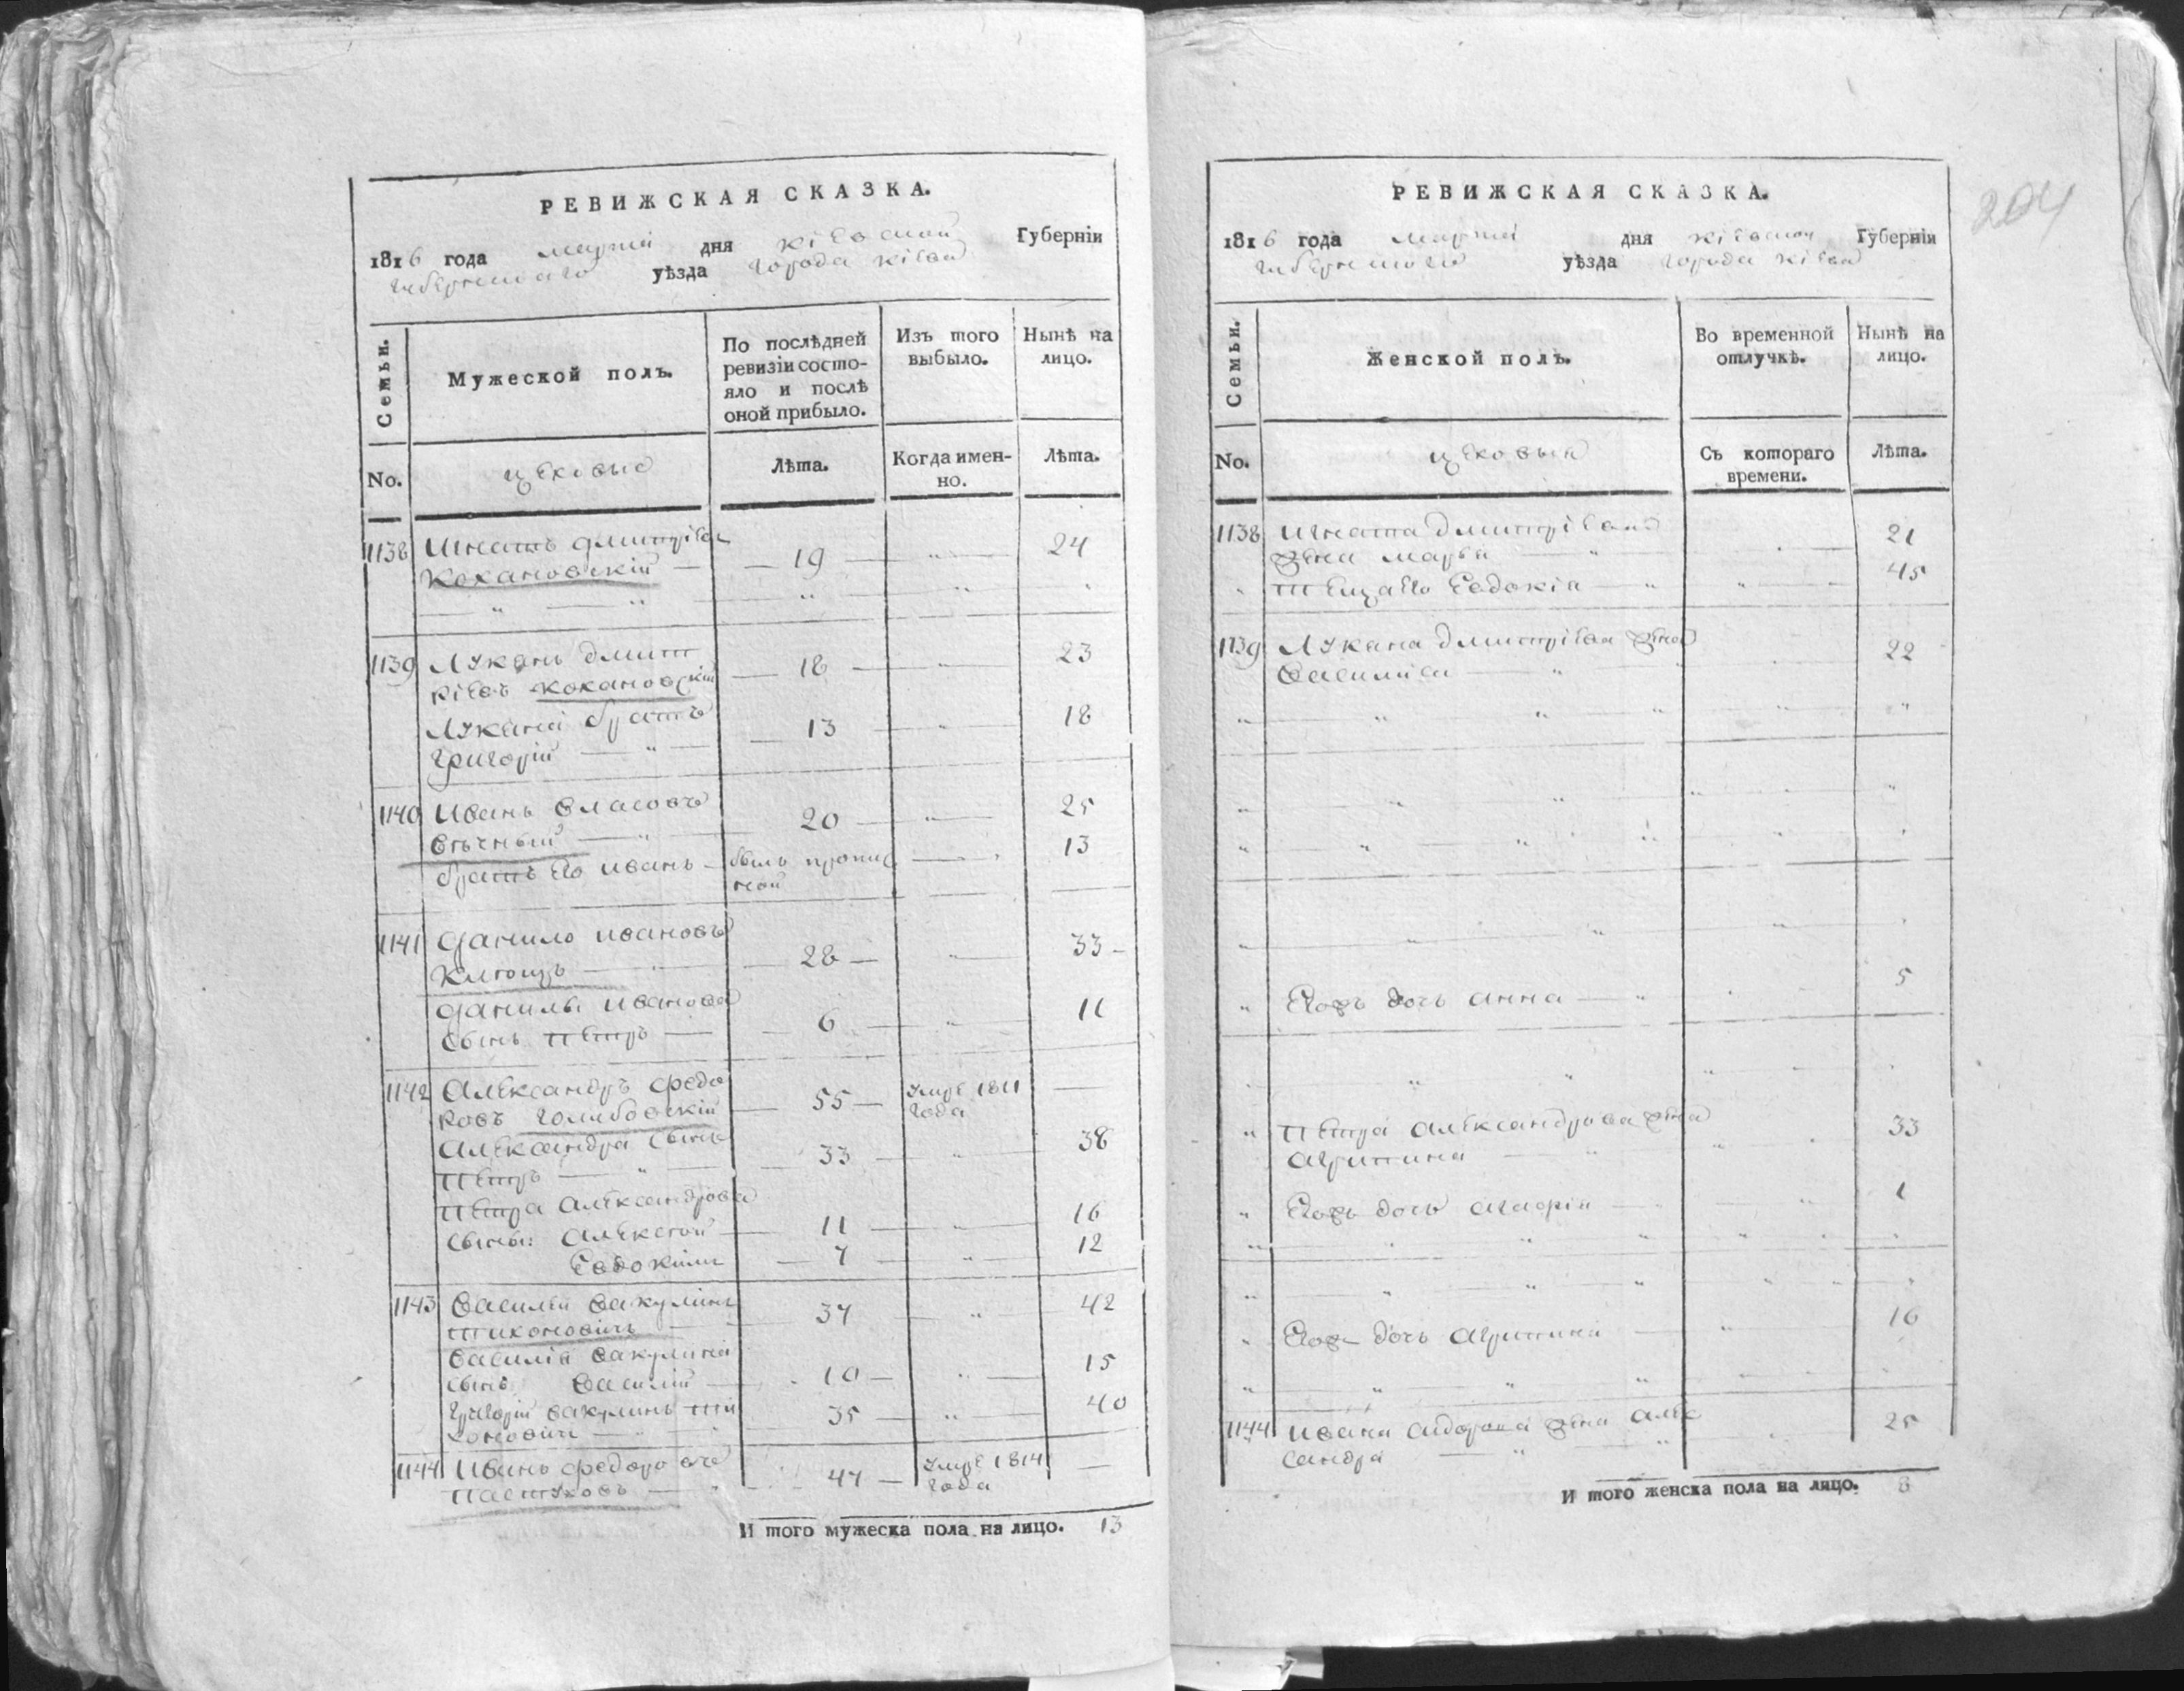 РЕВИЖСКАЯ СКАЗКА.
1816 года марта дня Кіевской Губерніи
Губернскаго уѣзда города Кіева
Семьи.
Мужеской полъ.
По послѣдней
ревизіи состо-
яло и послѣ
оной прибыло.
Изъ того
выбыло.
Нынѣ на
лицо.
No.
цеховые
Лѣта.
Когда имен-
но.
Лѣта.
1138 Игнатъ Дмитріев
Кохановскій — 19 — " — 24
1139 Лукянъ Дмит
ріевъ Кохановскій — 18 — " — 23
Лукяна братъ
Григорій — " — 13 — " — 18
1140 Иванъ Власовъ
Вѣчный — " — 20 — " — 25
братъ его Иванъ — былъ пропис
ной — 13
1141 Данило Ивановъ
— 28 — " — 33 —
Данилы Иванова
сынъ Петръ — 6 — " — 11
1142 Александръ Федо
ровъ Голубовскій — 55 — умре 1811
года —
Александра сынъ
Петръ — " — 33 — " — 38
Петра Александрова
сыны: Алексѣй — 11 — " — 16
Евдокимъ — 7 — " — 12
1143 Василій Вакулинъ
Тихоновичъ — 37 — " — 42
Василія Вакулина
сынъ Василій — 10 — " — 15
Григорій Вакулинъ Ти
хоновичъ — 35 — " — 40
1144 Иванъ Федоровъ
Пастуховъ — " — 47 — умре 1814
года —
И того мужеска пола на лицо. 13
204
РЕВИЖСКАЯ СКАЗКА.
1816 года марта дня Кіевской Губерніи
Губернского уѣзда города Кіева
Семьи.
Женской полъ.
Во временной
отлучкѣ.
Нынѣ на
лицо.
No.
цеховыя
Съ котораго
времени.
Лѣта.
1138 Игната Дмитріева
жена Марья — " — 21
Теща его Евдокія — " — 45
1139 Лукяна Дмитріева жена
Василиса — " — 22
" Егожъ дочь Анна — " — 5
" Петра Александрова жена
Агрипина — " — 33
" Егожъ дочь Агафія — 1
" Егожъ дочь Агрипина — " — 16
1144 Ивана жена Алек
сандра — " — 25
И того женска пола на лицо. 8